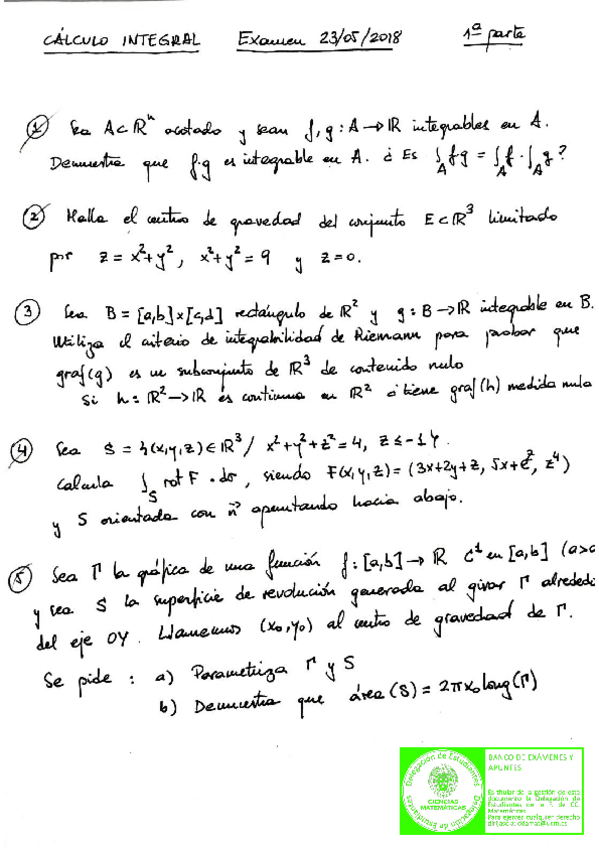 CÁLCULO INTEGRAL Examen 23/05/2018 1ª parte
① Sea A⊂ℝⁿ acotado y sean f, g : A→ℝ integrables en A.
Demuestra que f·g es integrable en A. ¿Es ∫_A fg = ∫_A f · ∫_A g?
② Halla el centro de gravedad del conjunto E⊂ℝ³ limitado
por z = x²+y², x²+y² = 9 y z=0.
③ Sea B = [a,b]×[c,d] rectángulo de ℝ² y g : B→ℝ integrable en B.
Utiliza el criterio de integrabilidad de Riemann para probar que
graf(g) es un subconjunto de ℝ³ de contenido nulo
Si h : ℝ²→ℝ es continua en ℝ² ¿tiene graf(h) medida nula
④ Sea S = {(x,y,z)∈ℝ³ / x²+y²+z²=4, z≤-1}.
Calcula ∫_S rot F · dσ, siendo F(x,y,z) = (3x+2y+z, 5x+e^z, z⁴)
y S orientada con n⃗ apuntando hacia abajo.
⑤ Sea Γ la gráfica de una función f : [a,b]→ℝ C¹ en [a,b] (a>
y sea S la superficie de revolución generada al girar Γ alrededo
del eje OY. Llamemos (x₀,y₀) al centro de gravedad de Γ.
Se pide : a) Parametriza Γ y S
b) Demuestra que área(S) = 2πx₀ long(Γ)
Delegación de Estudiantes
CIENCIAS
MATEMÁTICAS
Delegación de Estudiantes
BANCO DE EXÁMENES Y
APUNTES
Es titular de la gestión de este
documento la Delegación de
Estudiantes de la F. de CC.
Matemáticas